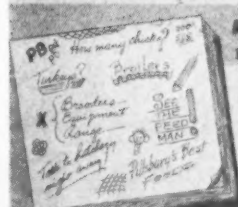 How many chicks?
Turkeys? Broilers
Brooders
Equipment
Range
SEE
THE
FEED
MAN!
Talk to hatchery
right away!
Pillsbury's Best